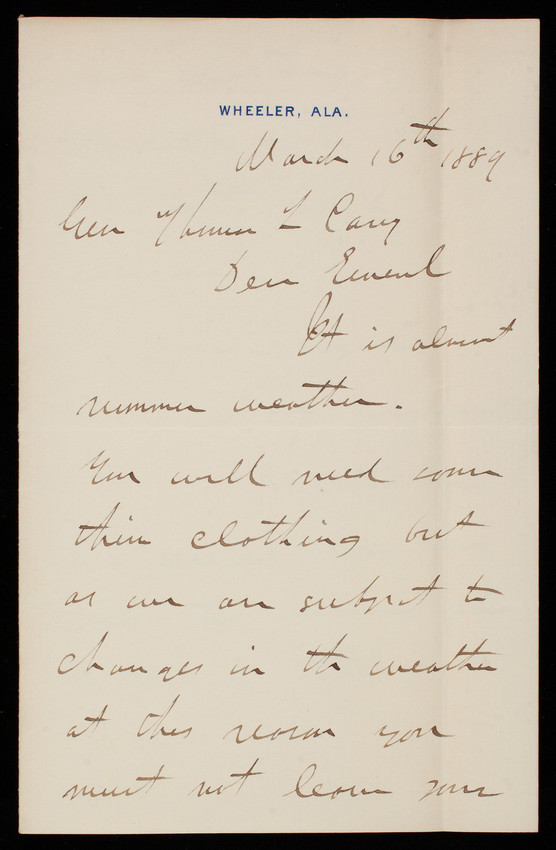 WHEELER, ALA.
March 16th 1889
Gen Thomas L Casey
Dear General
It is almost
summer weather.
You will need some
thin clothing but
as we are subject to
changes in the weather
at this season you
must not leave your